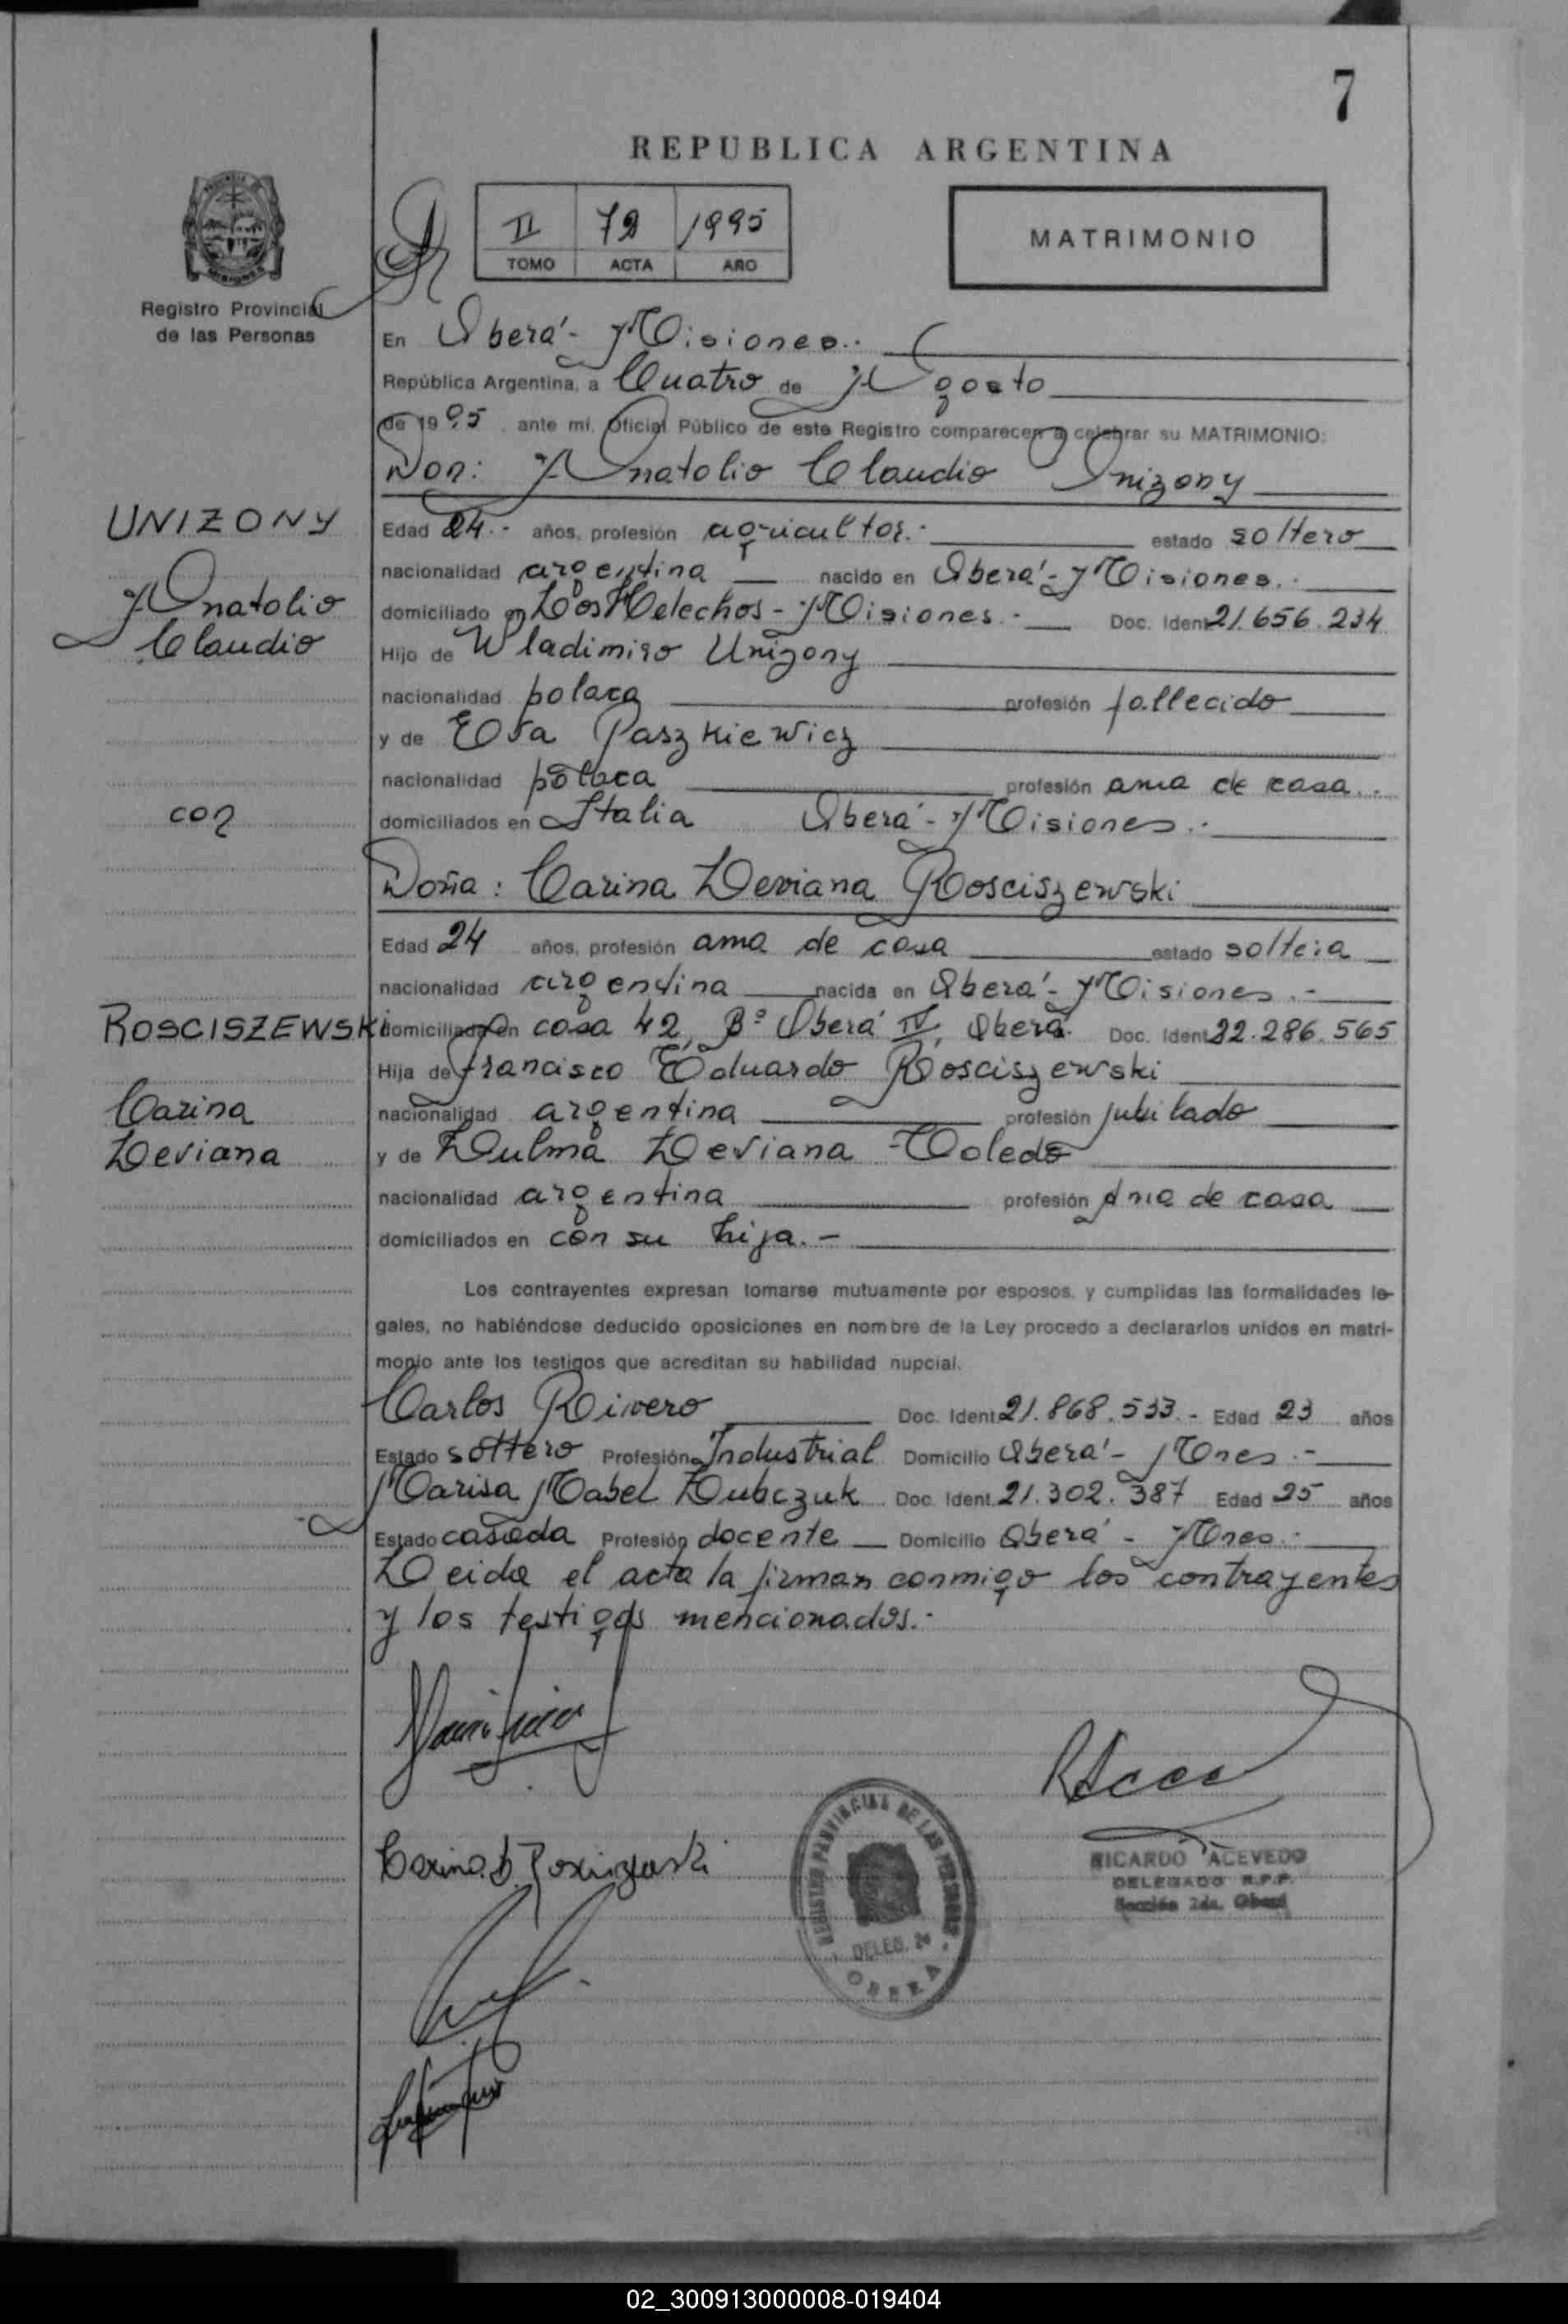 7
REPUBLICA ARGENTINA
II 79 1995
TOMO ACTA AÑO
MATRIMONIO
Registro Provincial
de las Personas
En Oberá - Misiones.-
República Argentina, a Cuatro de Agosto
de 1995, ante mí, Oficial Público de este Registro comparecen a celebrar su MATRIMONIO:
Don: Anatolio Claudio Unizony
UNIZONY
Anatolio
Claudio
Edad 24.- años, profesión agricultor.- estado soltero
nacionalidad argentina nacido en Oberá - Misiones.-
domiciliado en Los Helechos - Misiones.- Doc. Ident 21.656.234
Hijo de Wladimiro Unizony
nacionalidad polaca profesión fallecido
y de Eva Paszkiewicz
nacionalidad polaca profesión ama de casa.-
con
domiciliados en Italia Oberá - Misiones.-
Doña: Carina Leviana Rosciszewski
Edad 24 años, profesión ama de casa estado soltera
nacionalidad argentina nacida en Oberá - Misiones.-
ROSCISZEWSKI
Carina
Leviana
domiciliada en casa 42, Bº Oberá IV, Oberá. Doc. Ident 22.286.565
Hija de Francisco Eduardo Rosciszewski
nacionalidad argentina profesión jubilado
y de Dulma Leviana Toledo
nacionalidad argentina profesión Ama de casa
domiciliados en con su hija.-
Los contrayentes expresan tomarse mutuamente por esposos, y cumplidas las formalidades le-
gales, no habiéndose deducido oposiciones en nombre de la Ley procedo a declararlos unidos en matri-
monio ante los testigos que acreditan su habilidad nupcial.
Carlos Rivero Doc. Ident. 21.868.533.- Edad 23 años
Estado soltero Profesión Industrial Domicilio Oberá - Mnes.-
Marisa Mabel Dubczuk Doc. Ident. 21.302.387 Edad 25 años
Estado casada Profesión docente Domicilio Oberá - Mnes.-
Leida el acta la firman conmigo los contrayentes
y los testigos mencionados.-
RICARDO ACEVEDO
DELEGADO R.P.P.
Sección 2da. Oberá
REGISTRO PROVINCIAL DE LAS PERSONAS
DELEG. 2ª
OBERA
02_300913000008-019404